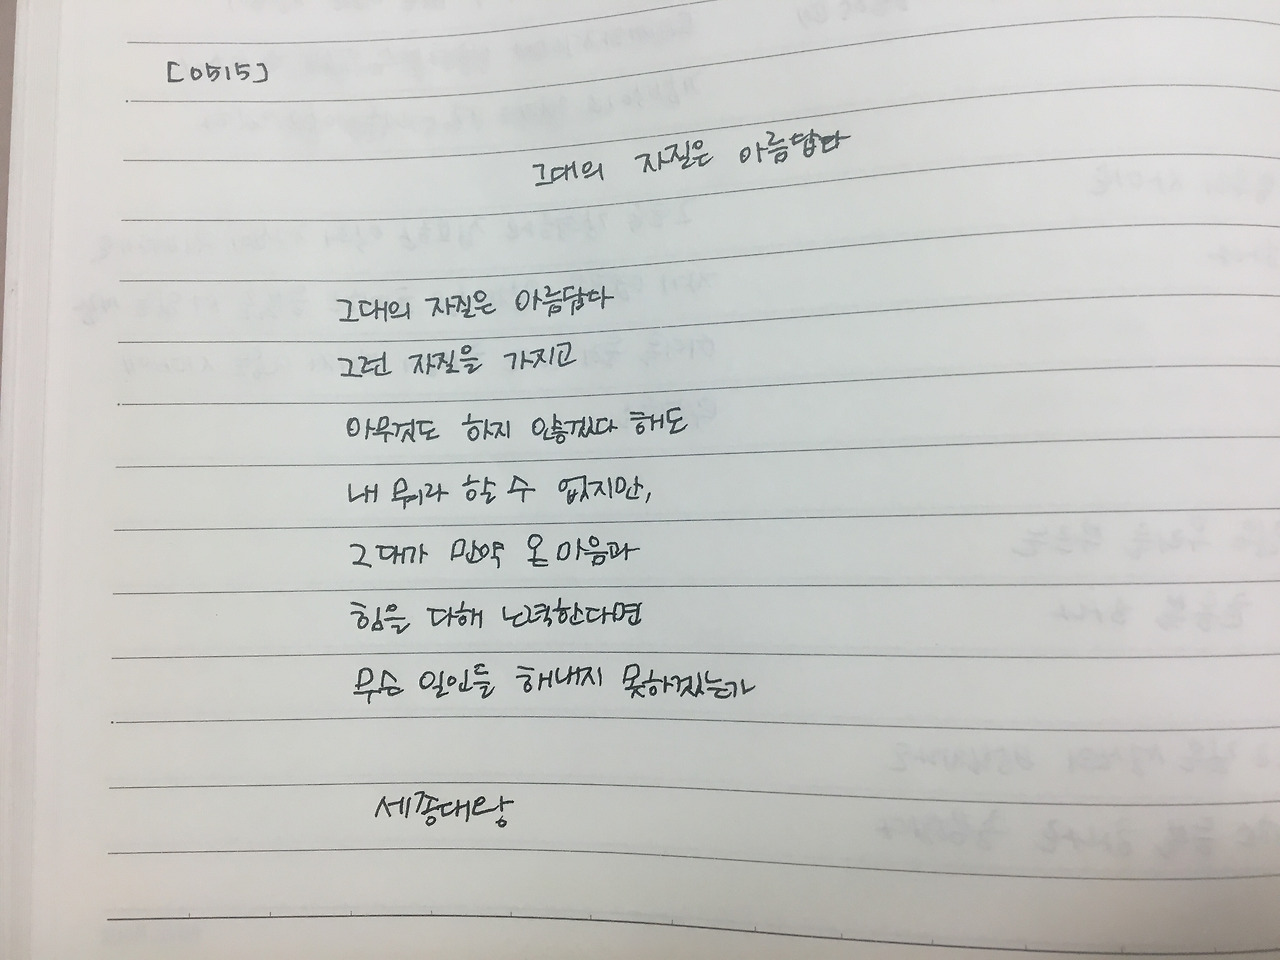 [0515]
그대의 자질은 아름답다
그대의 자질은 아름답다
그런 자질을 가지고
아무것도 하지 않겠다 해도
내 뭐라 할 수 없지만,
그대가 만약 온 마음과
힘을 다해 노력한다면
무슨 일인들 해내지 못하겠는가
세종대왕